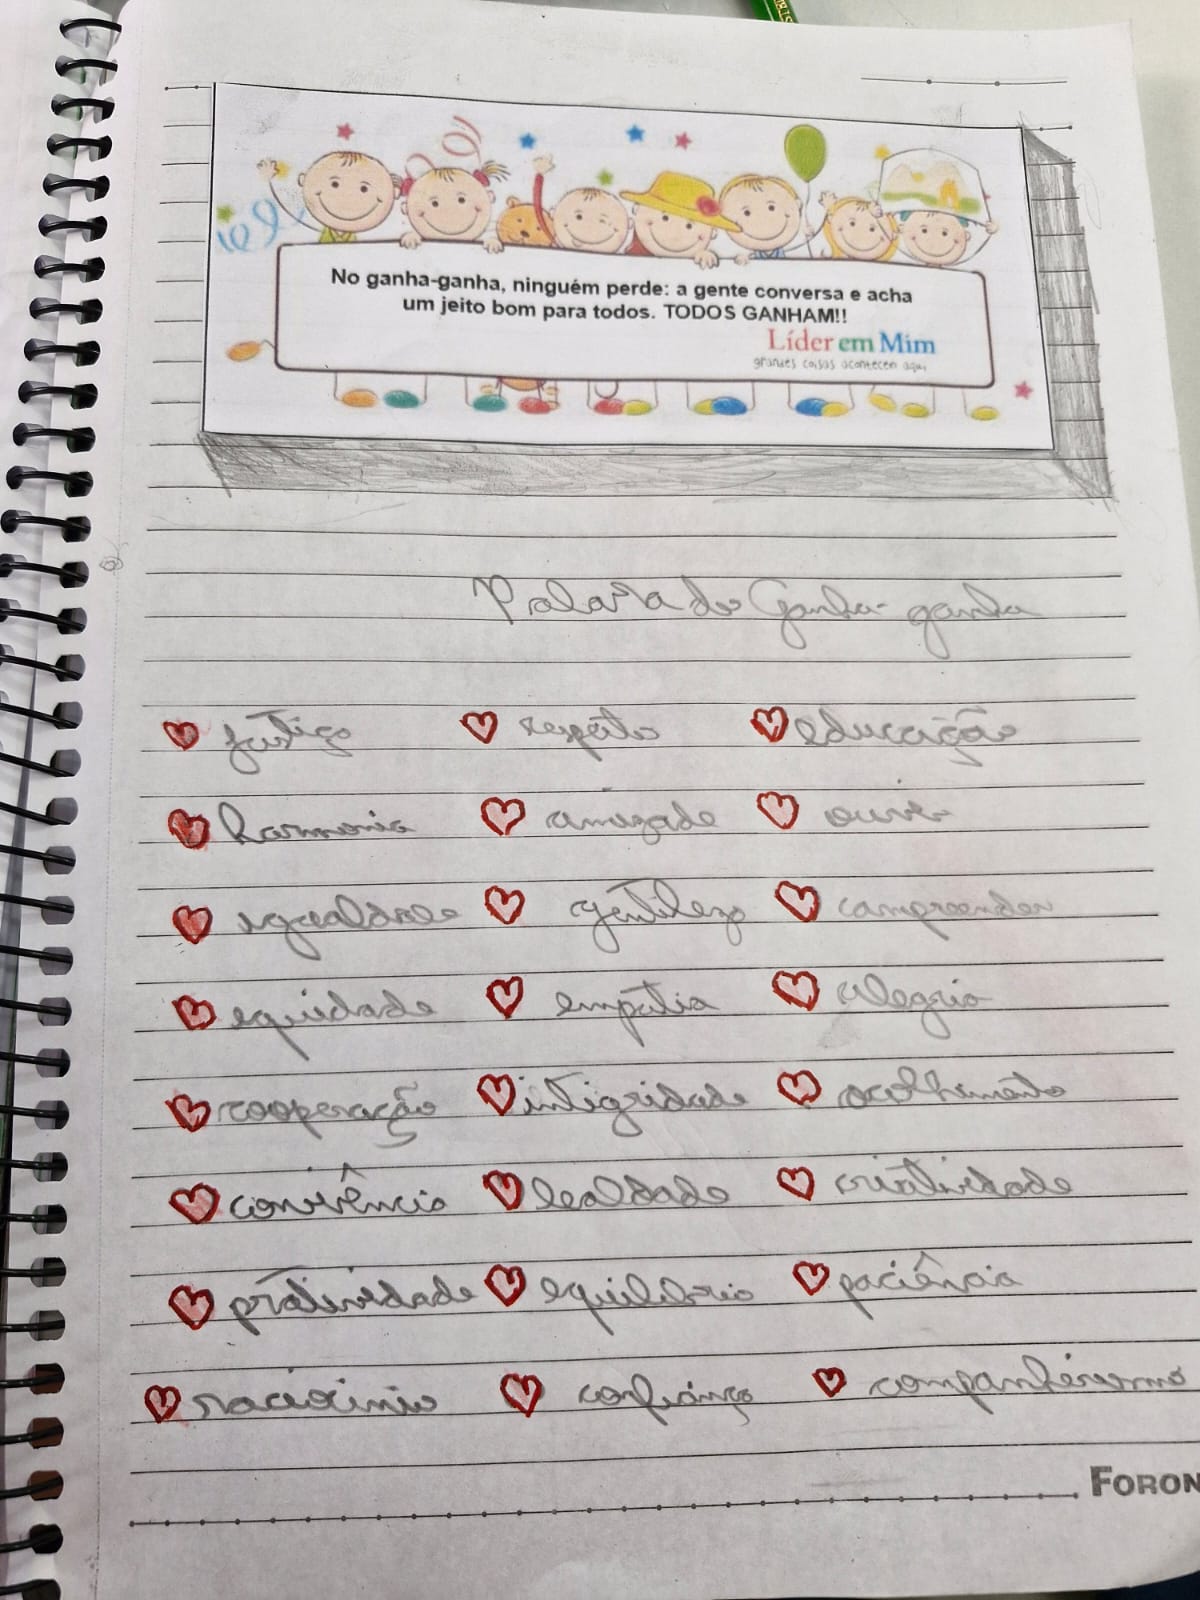 No ganha-ganha, ninguém perde: a gente conversa e acha
um jeito bom para todos. TODOS GANHAM!!
Líder em Mim
grandes coisas acontecem aqui
de Ganha-ganha
justiça respeito educação
harmonia amizade ouvir
igualdade gentileza compreender
equidade empatia alegria
cooperação intigridade acolhimento
convivência lealdade criatividade
proatividade equilíbrio paciência
raciocínio confiança
FORON